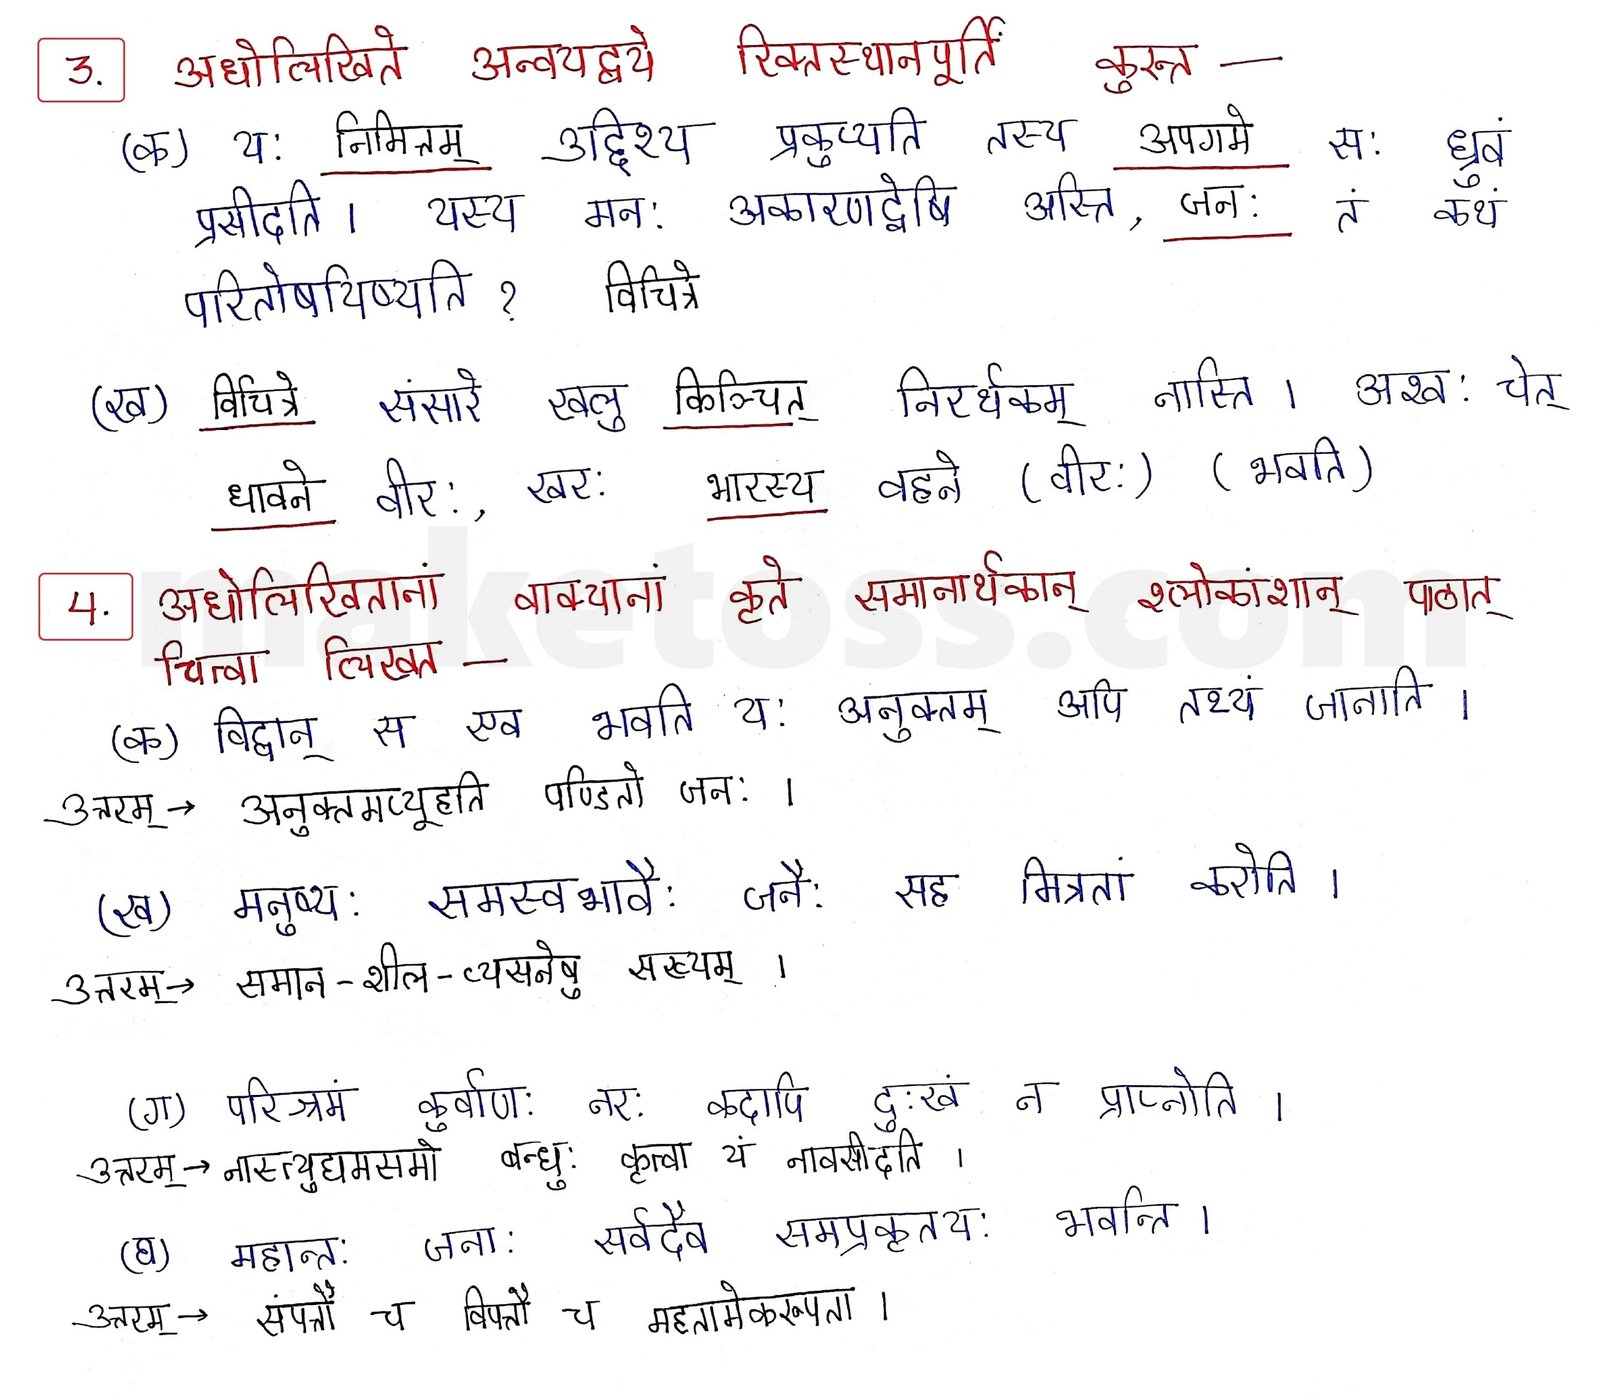 3. अधोलिखिते अन्वयद्वये रिक्तस्थानपूर्तिं कुरुत —
(क) यः निमित्तम् उद्दिश्य प्रकुप्यति तस्य अपगमे सः ध्रुवं
प्रसीदति । यस्य मनः अकारणद्वेषि अस्ति, जनः तं कथं
परितोषयिष्यति ? विचित्रे
(ख) विचित्रे संसारे खलु किञ्चित् निरर्थकम् नास्ति । अश्वः चेत्
धावने वीरः, खरः भारस्य वहने (वीरः) (भवति)
maketoss.com
4. अधोलिखितानां वाक्यानां कृते समानार्थकान् श्लोकांशान् पाठात्
चित्वा लिखत —
(क) विद्वान् स एव भवति यः अनुक्तम् अपि तथ्यं जानाति ।
उत्तरम् → अनुक्तमप्यूहति पण्डितो जनः ।
(ख) मनुष्यः समस्वभावैः जनैः सह मित्रतां करोति ।
उत्तरम् → समान-शील-व्यसनेषु सख्यम् ।
(ग) परिश्रमं कुर्वाणः नरः कदापि दुःखं न प्राप्नोति ।
उत्तरम् → नास्त्युद्यमसमो बन्धुः कृत्वा यं नावसीदति ।
(घ) महान्तः जनाः सर्वदैव समप्रकृतयः भवन्ति ।
उत्तरम् → संपत्तौ च विपत्तौ च महतामेकरूपता ।